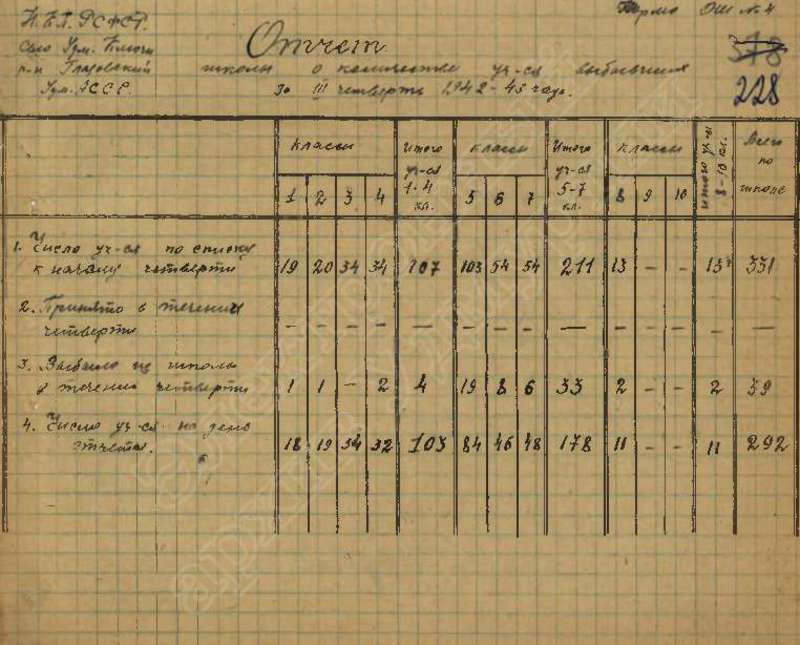 Н.К.П. РСФСР.
Форма ОШ № 4
Село Удм. Ключи
Отчет
378
р-н Глазовский
школы о количестве уч-ся выбывших
Удм. АССР.
За III четверть 1942-43 года.
228
Классы
Итого уч-ся 1-4 кл.
Классы
Итого уч-ся 5-7 кл.
Классы
Итого уч-ся 8-10 кл.
Всего по школе
1 2 3 4 5 6 7 8 9 10
1. Число уч-ся по списку
к началу четверти 19 20 34 34 107 103 54 54 211 13 - - 13 331
2. Принято в течении
четверти - - - - - - - - - - - - - -
3. Выбыло из школы
в течении четверти 1 1 - 2 4 19 8 6 33 2 - - 2 39
4. Число уч-ся на день
отчета. 18 19 34 32 103 84 46 48 178 11 - - 11 292